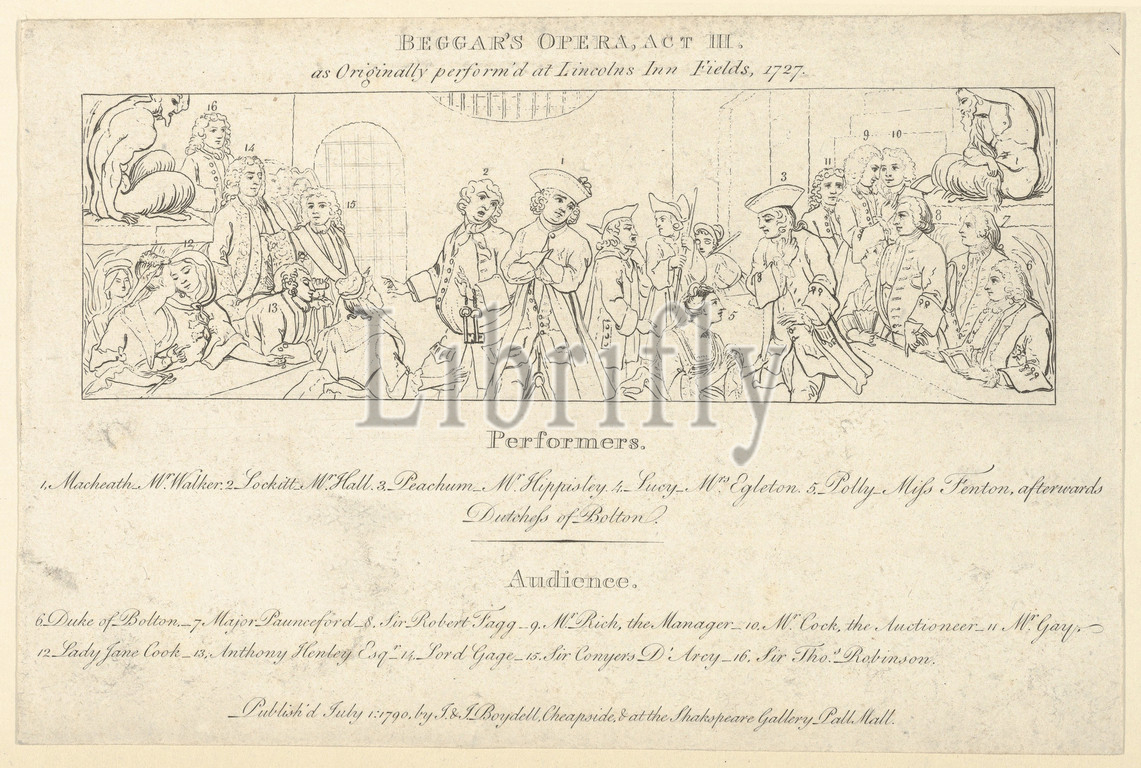 BEGGAR'S OPERA, ACT III.
as Originally perform'd at Lincolns Inn Fields, 1727.
16
14
2
1
15
3
11
9
10
8
7
6
12
13
5
Librifly
Performers.
1, Macheath_Mr Walker. 2_Lockitt_Mr Hall. 3_Peachum_Mr Hippisley. 4_Lucy_Mrs Egleton. 5_Polly_Miss Fenton, afterwards
Dutchess of Bolton.
Audience.
6_Duke of Bolton._7_Major Paunceford_8, Sir Robert Fagg_9_Mr Rich, the Manager_10_Mr Cock, the Auctioneer_11 Mr Gay,
12_Lady Jane Cook_13, Anthony Henley Esqr 14_Lord Gage_15_Sir Conyers D'Arcy_16, Sir Thos. Robinson.
Publish'd July 1: 1790, by J. & J. Boydell, Cheapside, & at the Shakspeare Gallery Pall Mall.